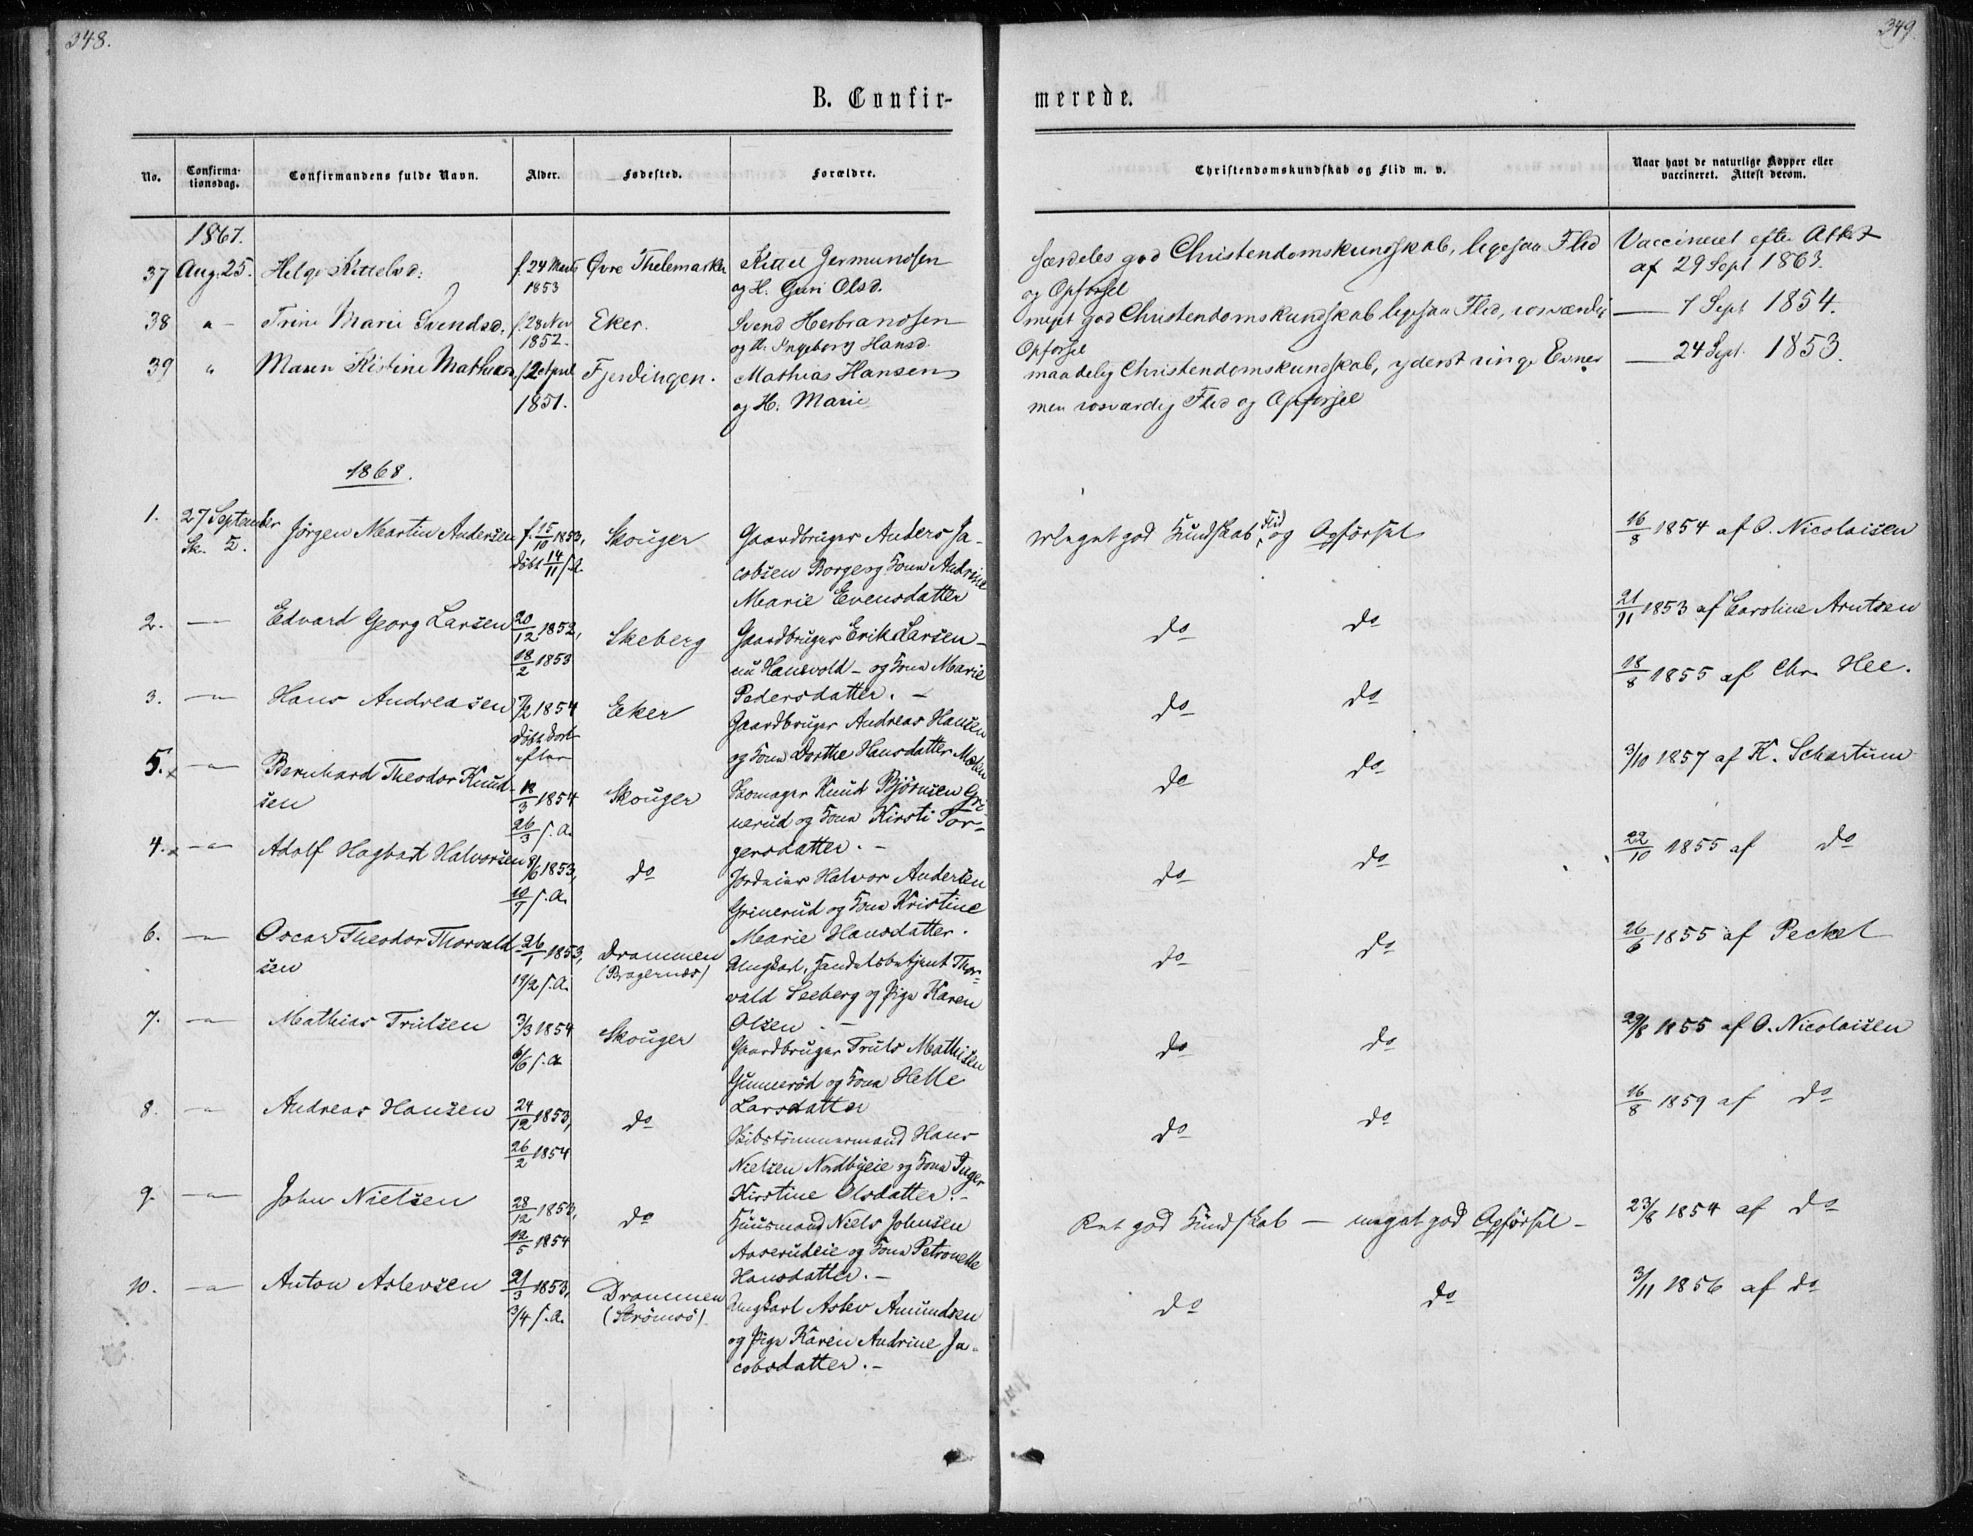 348.
349.
B. Confir-
merede.
No.
Confirma-
tionsdag.
Confirmandens fulde Navn.
Alder.
Fødested.
Forældre.
Christendomskundskab og Flid m. v.
Naar havt de naturlige Kopper eller
vaccineret. Attest derom.
1867.
37 Aug. 25. Helge Kittelsd: f. 24 Marts Øvre Thelemarken Kittel Germundsen særdeles god Christendomskundskab, ligesaa Flid Vaccineret efter Attest
1853 og H. Guri Olsd. og Opførsel af 29 Sept 1863.
38 " - Trine Marie Svendsd. f. 28 Nov Eker. Svend Herbrandsen meget god Christendomskundskab ligesaa Flid, rosværdig — 7 Sept 1854.
1852. og H. Ingeborg Hansd. Opførsel
39 " Maren Kistine Mathiasd. f. 2 April Fjerdingen. Mathias Hansen maadelig Christendomskundskab, yderst ringe Evner — 24 Sept. 1853.
1851. og H: Marie men rosværdig Flid og Opførsel
1868.
1. 27 September Jørgen Martin Andersen f. 15/10 1853, Skouger Gaardbruger Anders Ja- meget god Kundskab, Flid og Opførsel 16/8 1854 af O. Nicolaisen
Sk. 5. døbt 14/11 s.A. cobsen Borge og Kone Andrine
Marie Evensdatter
2. —"— Edvard Georg Larsen 20/12 1852, Skeberg Gaardbruger Erik Larsen – do do 21/11 1853 af Caroline Arntsen
18/2 1853 nu Hansvold – og Kone Marie
Pedersdatter. –
3. —"— Hans Andreasen 7/2 1854 Eker Gaardbruger Andreas Hansen do do 18/8 1855 af Chr. Hee.
døbt
efter og Kone Dorthe Hansdatter
5. x —"— Bernhard Theodor Knud- 12/3 1854 Skouger Skomager Knud Bjørnsen Gri- do do 3/10 1857 af K. Schartum
sen 26/3 s.A. nerud og Kone Kirsti Tor-
gersdatter. –
4. x —"— Adolf Hagbart Halvorsen 8/6 1853, do Halvor Andersen do do 22/10 1855 af do
10/7 s.A. Grinerud og Kone Kristine
Marie Hansdatter.
6. —"— Oscar Theodor Thorvald- 26/1 1853, Drammen Ungkarl, Handelsbetjent Thor- do do 26/6 1855 af Peckel
sen 19/2 s.A. (Bragernæs) vald Seeberg og Pige Karen
Olsen. –
7. —"— Mathias Trulsen 3/3 1854 Skouger Gaardbruger Truls Mathisen do do 29/8 1855 af O. Nicolaisen
6/6 s.A. Gunnerød og Kone Helle
Larsdatter
8. —"— Andreas Hansen 24/12 1853, do Skibstømmermand Hans do do 16/8 1859 af do
26/2 1854 Nielsen Nordbyeie og Kone Inger
Kirstine Olsdatter. –
9. —"— John Nielsen 28/12 1853, do Huusmand Niels Johnsen Ret god Kundskab – meget god Opførsel – 23/8 1854 af do
12/5 1854 Aaserudeie og Kone Petronelle
Hansdatter. –
10. —"— Anton Aslevsen 21/3 1853, Drammen Ungkarl Aslev Amundsen do do 3/11 1856 af do
3/4 s.A. (Strømsø). og Pige Karen Andrine Ja-
cobsdatter. –